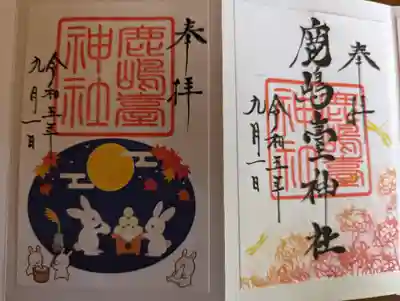 奉拝
鹿嶋臺神社
鹿嶋臺
神社
令和五年
九月一日
奉拝
鹿嶋臺
神社
令和五年
九月一日